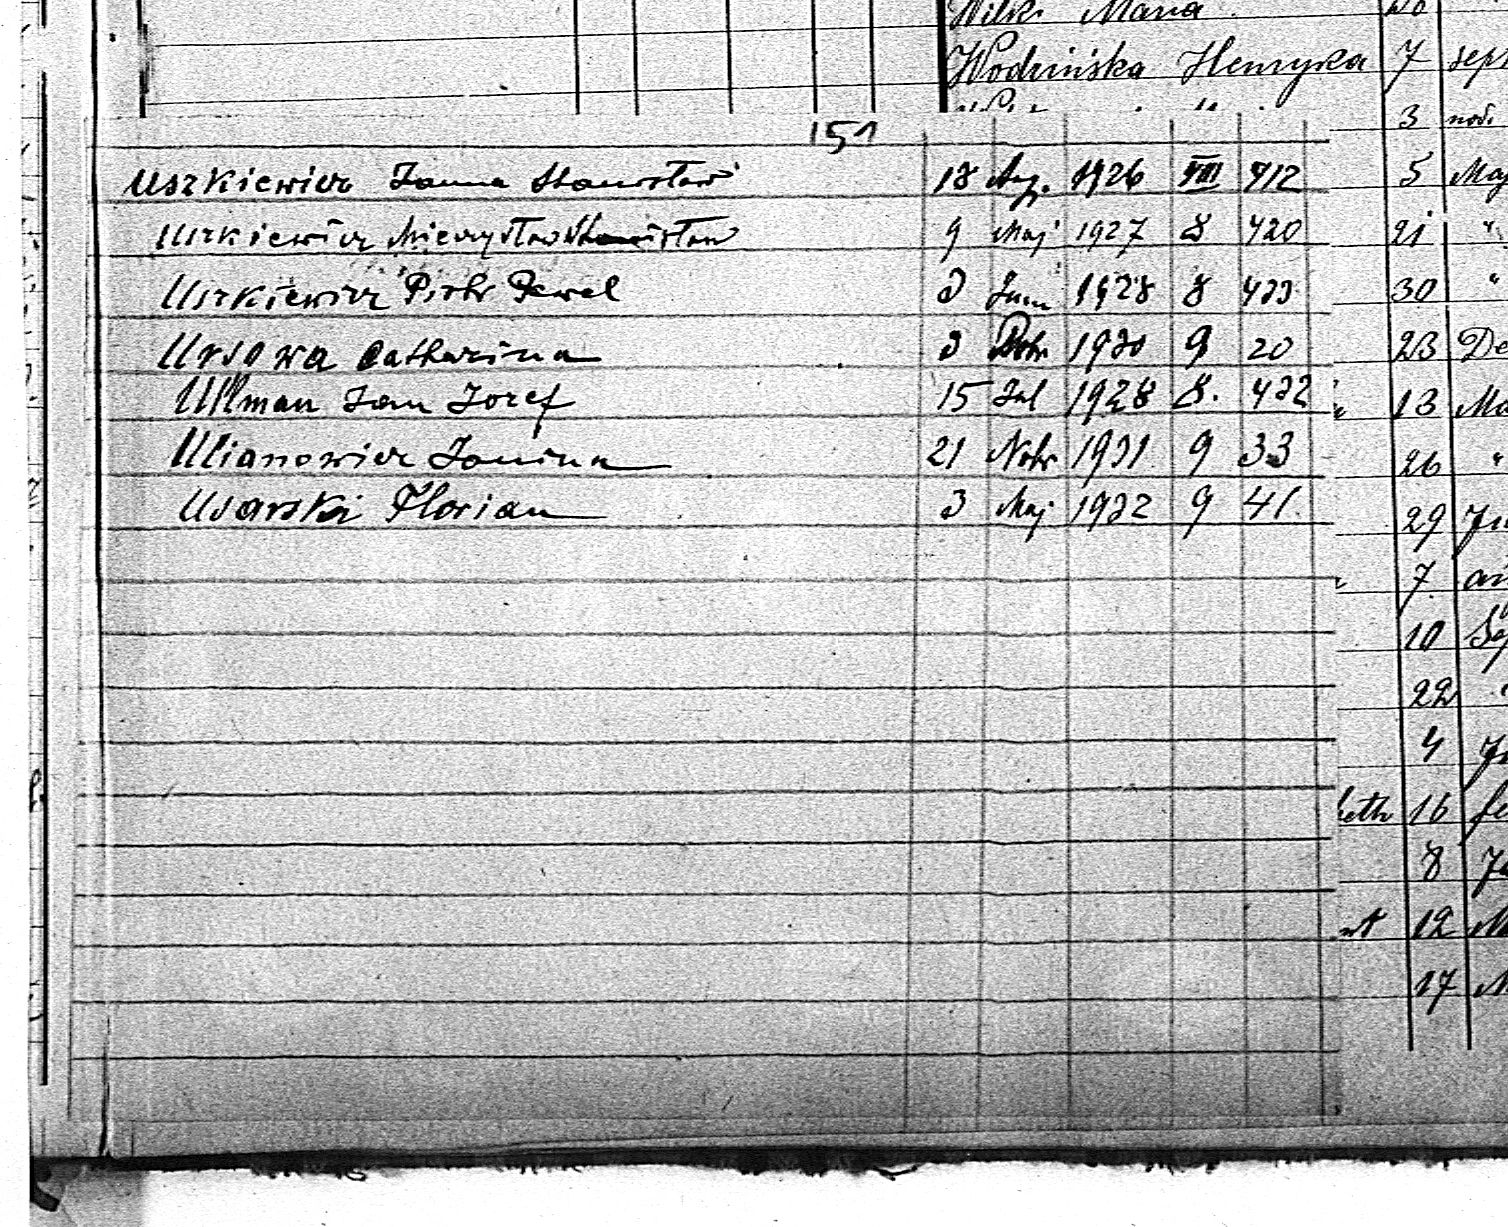 Wilk Maria
Wodzińska Henryka 7 sept
3 nov.
151
Uszkiewicz Janina Stanisław 18 Aug. 1926 VIII 412
Uszkiewicz Mieczysław Stanisław 9 Maj 1927 8 420
Uszkiewicz Piotr Pawel 3 Juni 1928 8 433
Ursowa Catharina 3 1930 9 20
Ullman Jan Jozef 15 Jul 1928 8. 432
Ulianowicz Janina 21 Nobr 1931 9 33
Usarski Florian 3 Maj 1932 9 41.
5 Maj
21 "
30 "
23 De
13 Ma
26 "
29
7
10
22
4
beth 16 fe
8
12 M
17